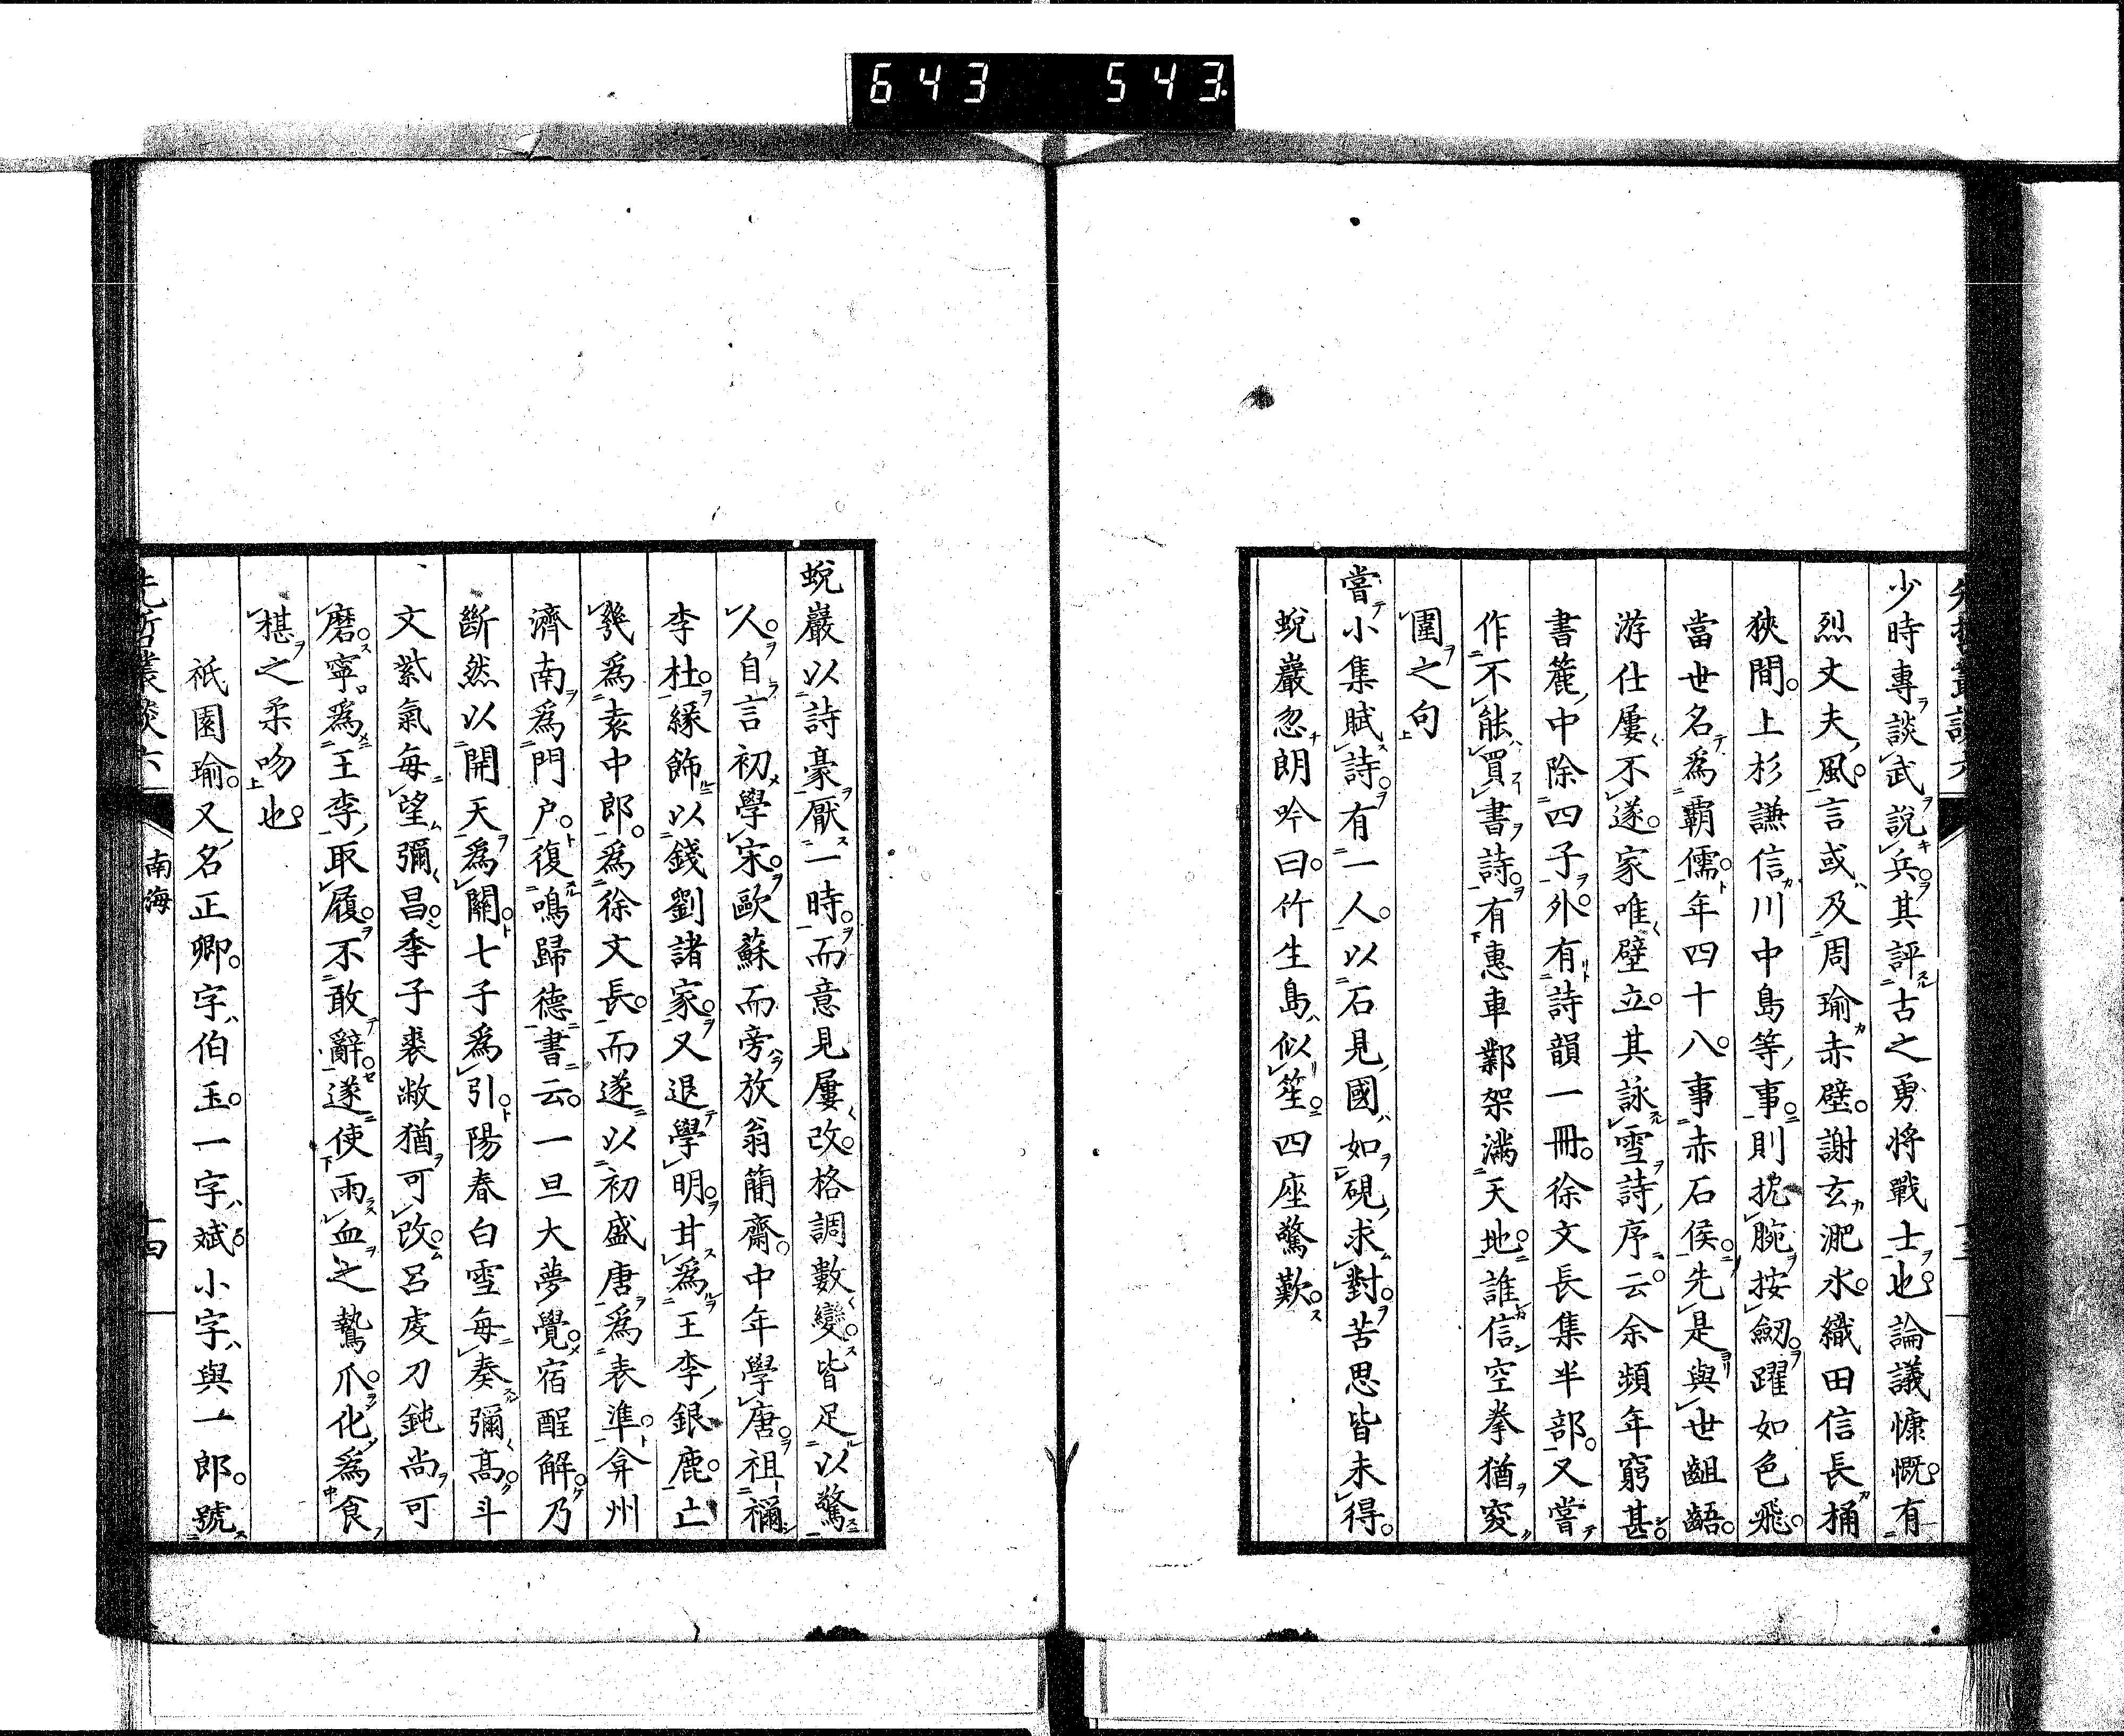 643 543.
少時專談武說兵其評古之勇將戰士也論議慷慨有
烈丈夫風言或及周瑜赤壁謝玄淝水織田信長桶
狹間上杉謙信川中島等事則扼腕按劒躍如色飛
當世名為覇儒年四十八事赤石侯先是與世齟齬
游仕屢不遂家唯壁立其詠雪詩序云余頻年窮甚
書簏中除四子外有詩韻一冊徐文長集半部又嘗
作不能買書詩有惠車鄴架滿天地誰信空拳猶突
圍之句
嘗小集賦詩有一人以石見國如硯求對苦思皆未得
蛻巖忽朗吟曰竹生島似笙四座驚歎
蛻巖以詩豪厭一時而意見屢改格調數變皆足以驚
人自言初學宋歐蘇而旁放翁簡齋中年學唐祖禰
李杜緣飾以錢劉諸家又退學明甘為王李銀鹿亡
幾為袁中郎為徐文長而遂以初盛唐為表準弇州
濟南為門戶復鳴歸德書云一旦大夢覺宿酲解乃
斷然以開天為關七子為引陽春白雪每奏彌高斗
文紫氣每望彌昌季子裘敝猶可改呂虔刀鈍尚可
磨寧為王李取履不敢辭遂使雨血之鷙爪化為食
椹之柔吻也
祇園瑜又名正卿字伯玉一字斌小字與一郎號
先哲叢談六
南海
十四